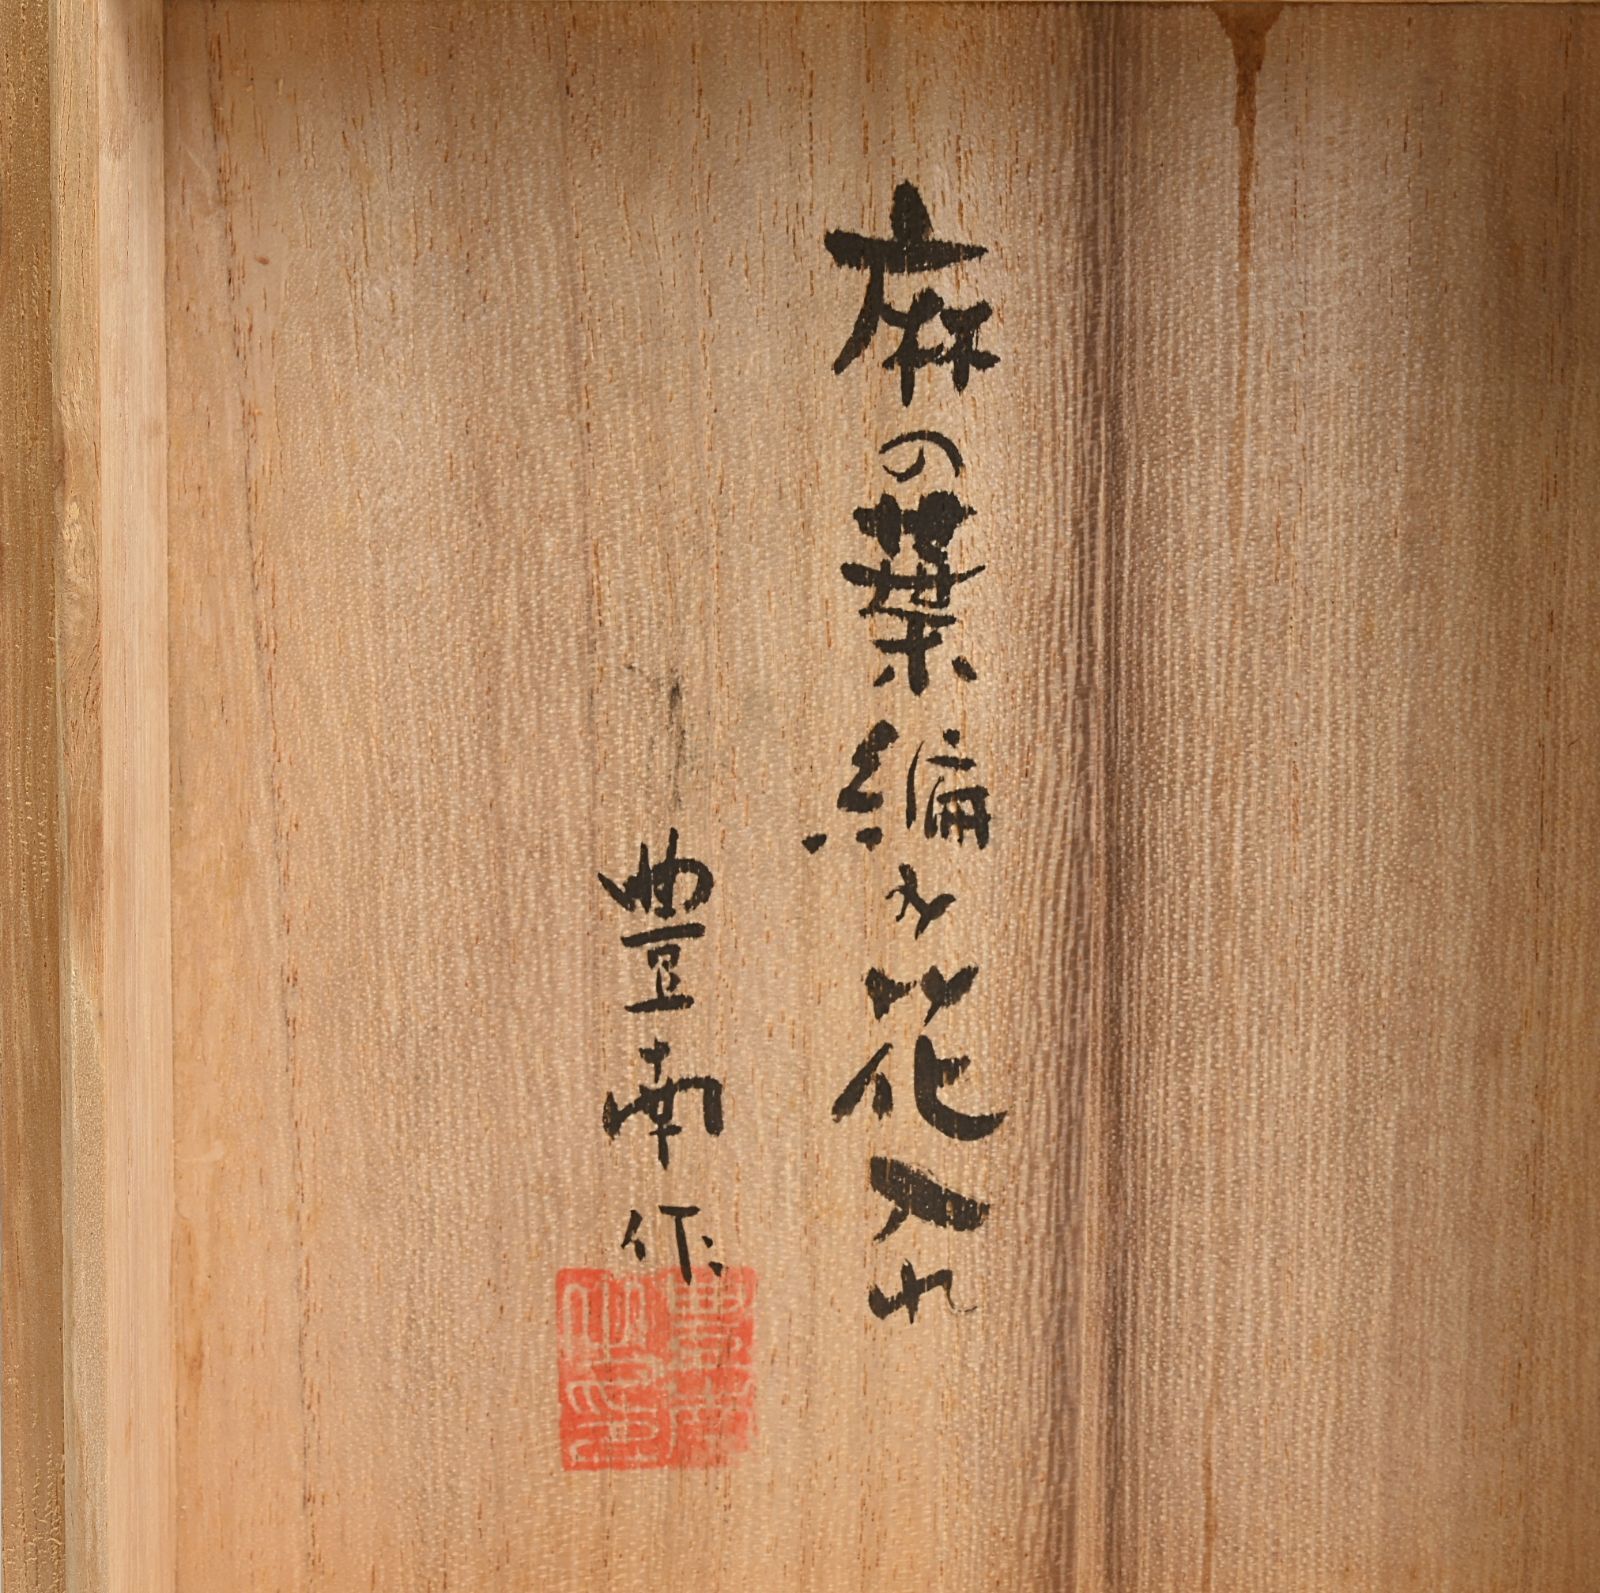 麻の葉編み花入れ
豊南作